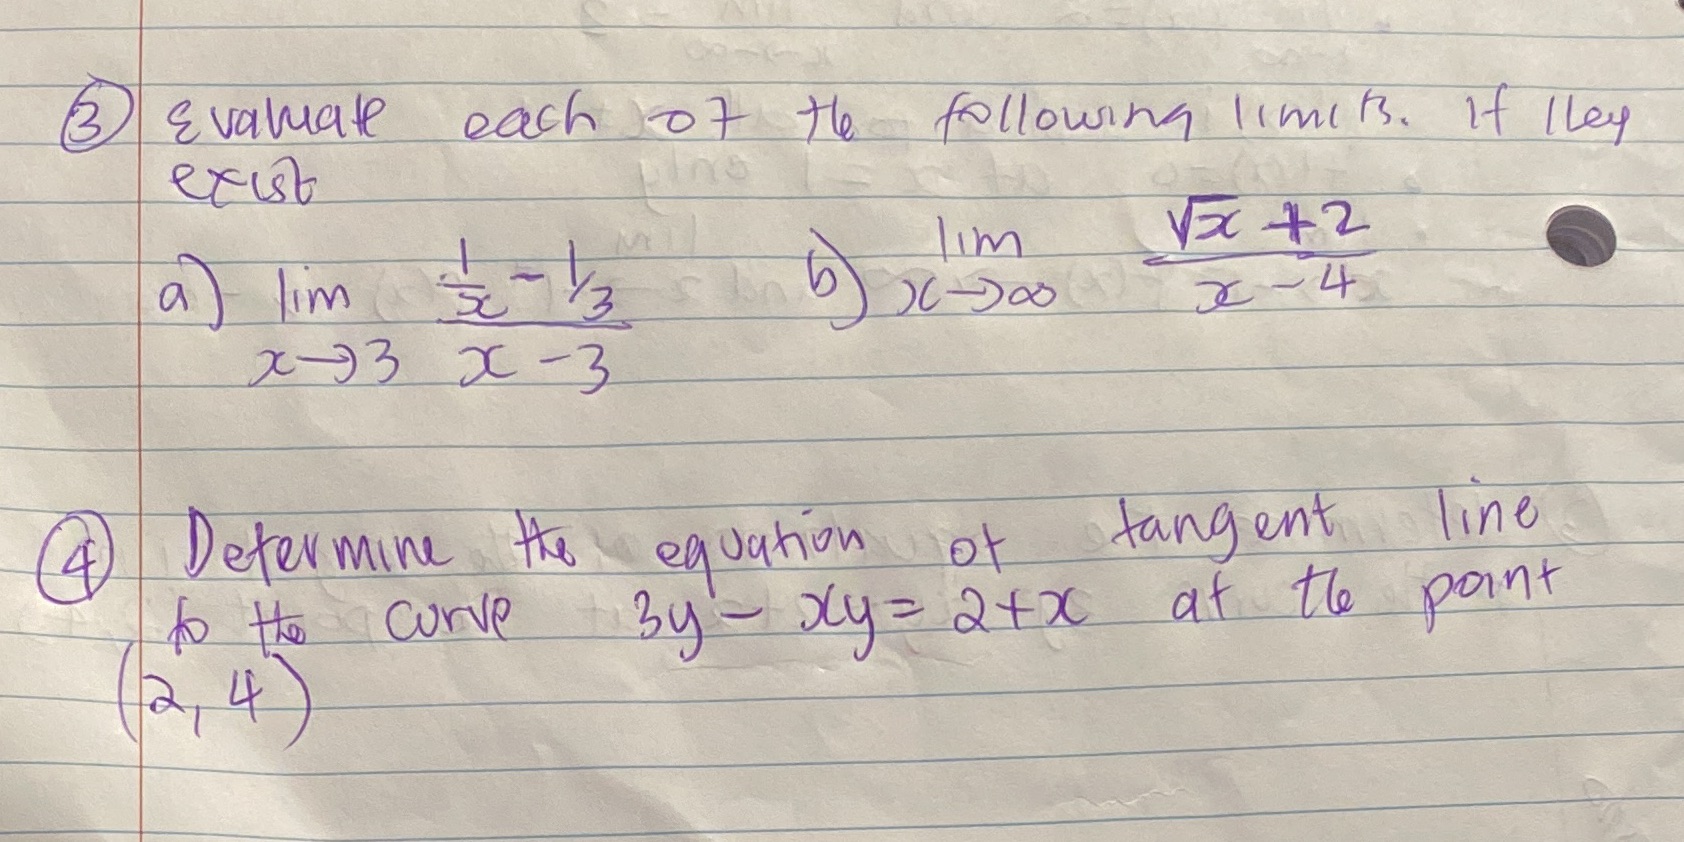 ③ Evaluate each of the following limits. If they
exist
a) lim x→3 (1/x - 1/3)/(x - 3) b) lim x→∞ (√x + 2)/(x - 4)
④ Determine the equation of tangent line
to the curve 3y - xy = 2+x at the point
(2, 4)